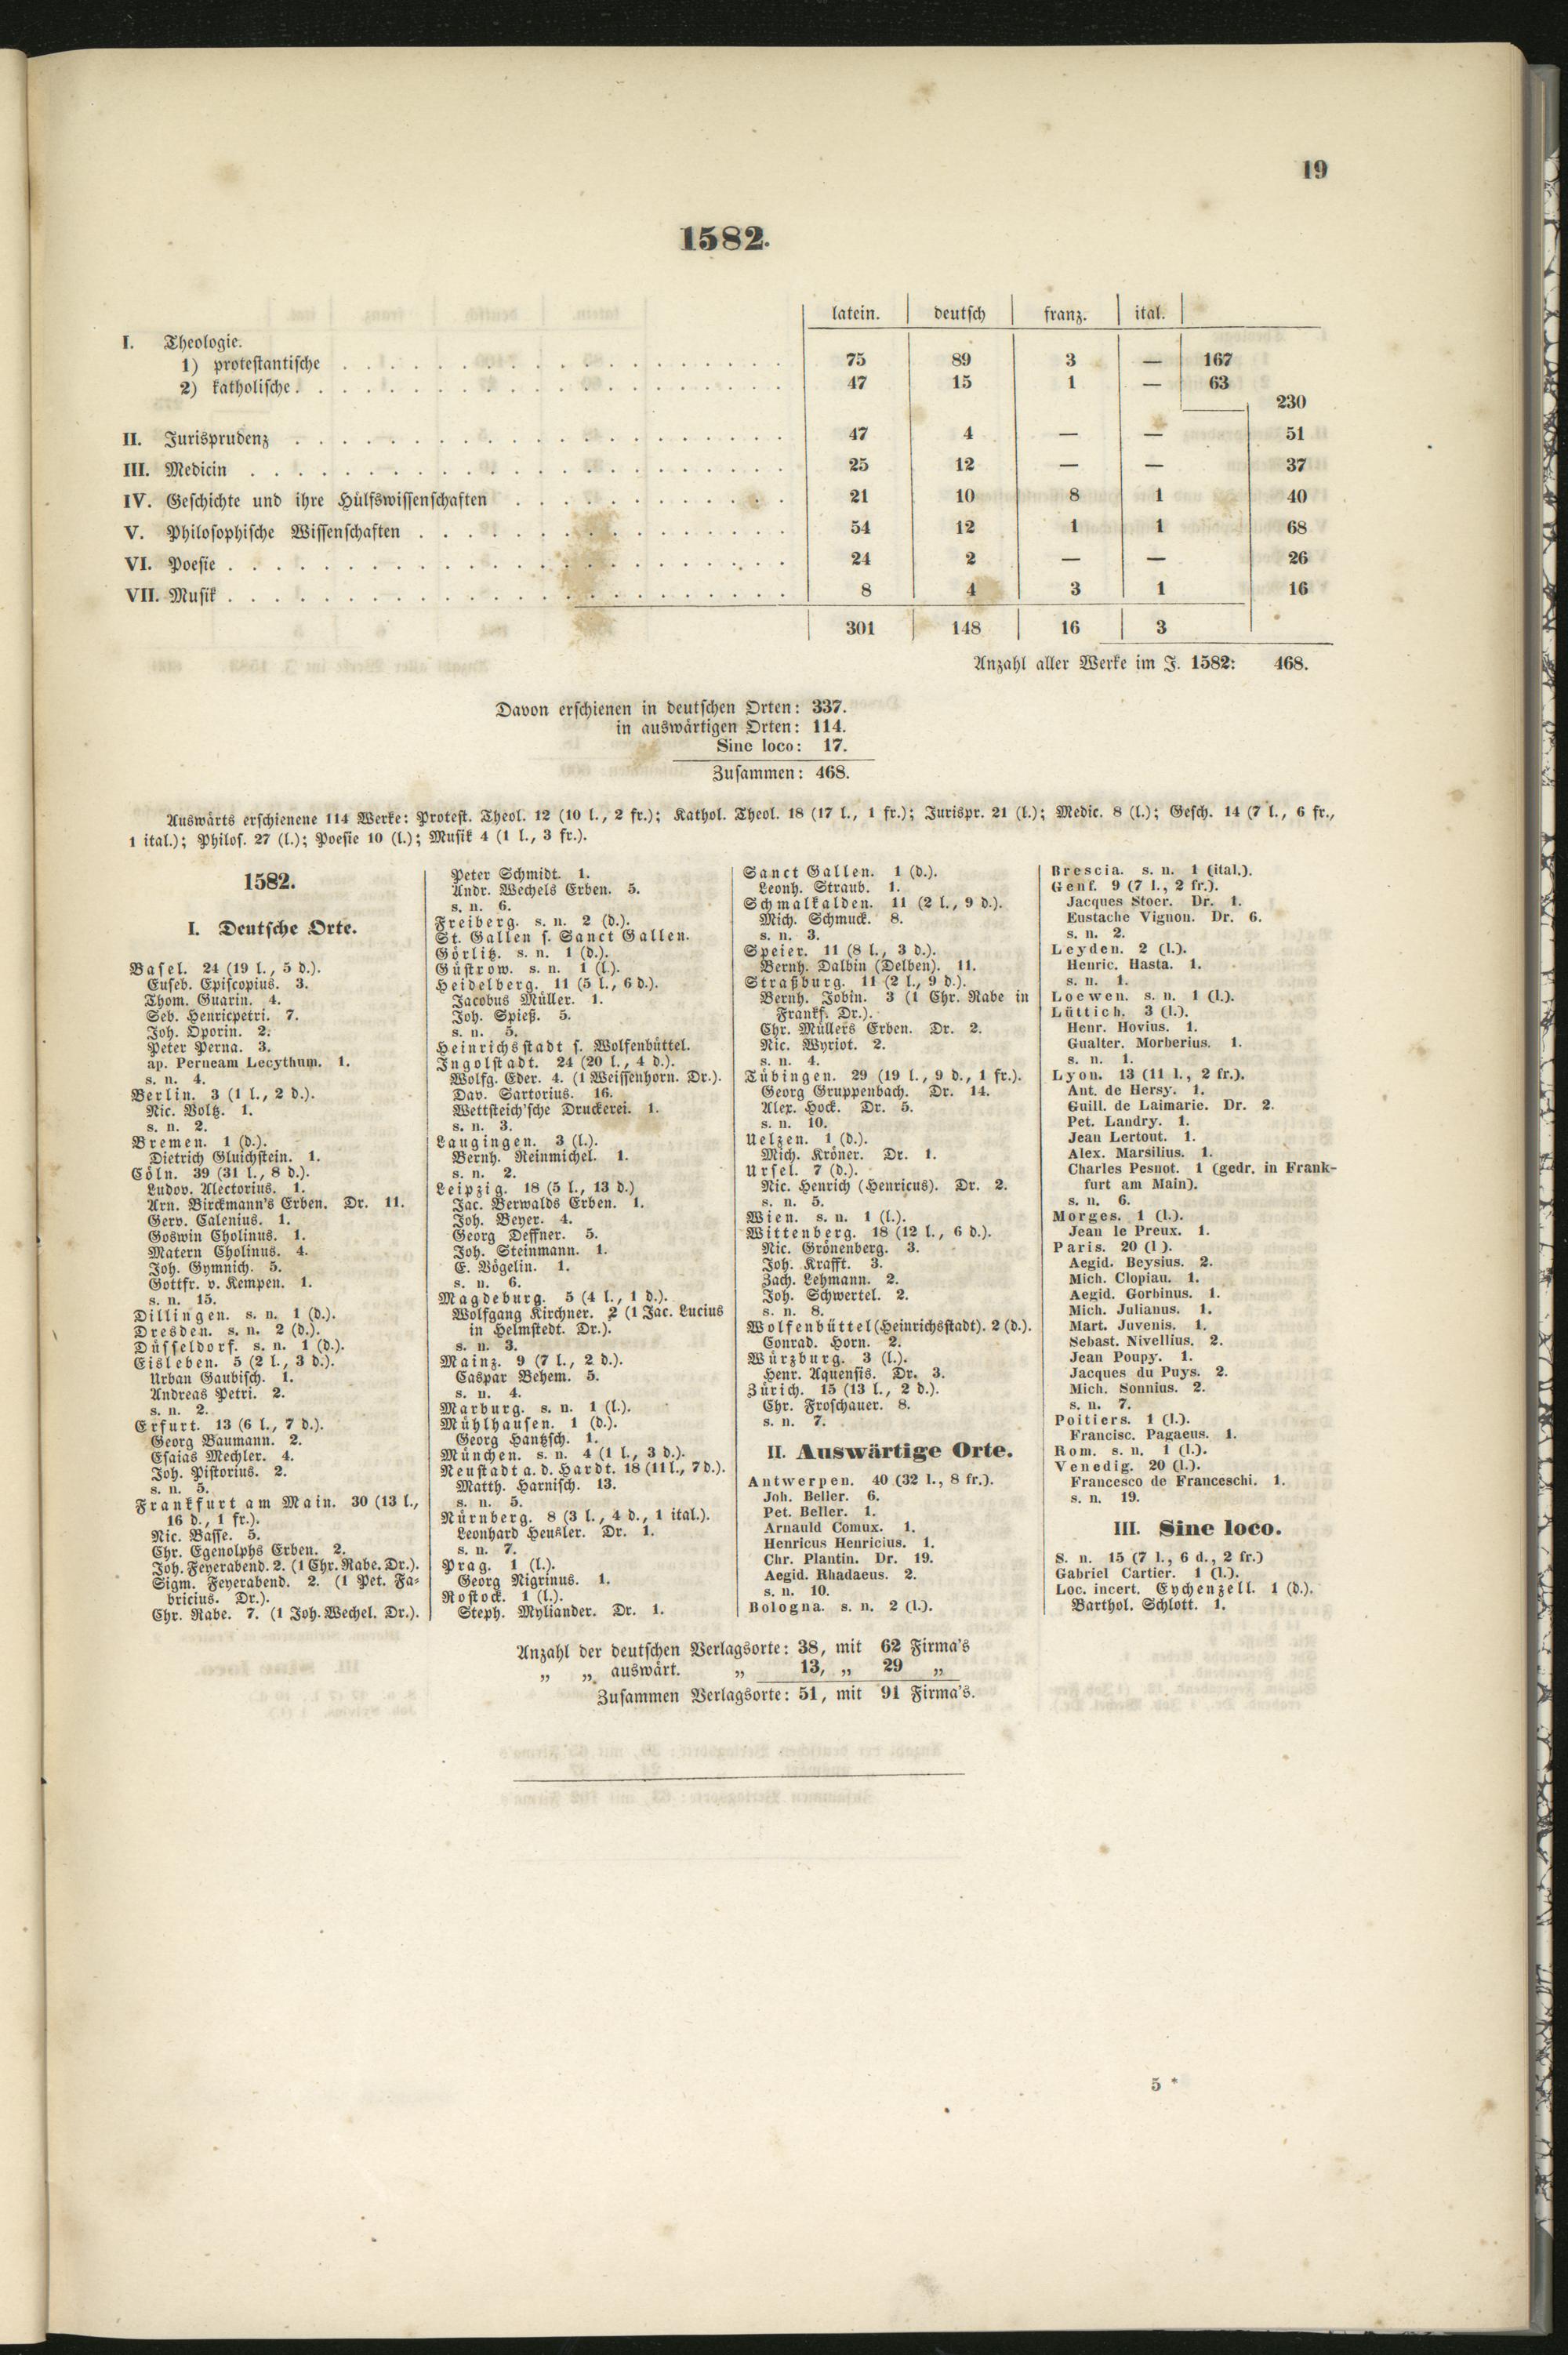 19
1582.
latein. deutsch franz. ital.
I. Theologie.
1) protestantische . . . 75 89 3 — 167
2) katholische . . . 47 15 1 — 63
230
II. Jurisprudenz . . . 47 4 — — 51
III. Medicin . . . 25 12 — — 37
IV. Geschichte und ihre Hülfswissenschaften . . . 21 10 8 1 40
V. Philosophische Wissenschaften . . . 54 12 1 1 68
VI. Poesie . . . 24 2 — — 26
VII. Musik . . . 8 4 3 1 16
301 148 16 3
Anzahl aller Werke im J. 1582: 468.
Davon erschienen in deutschen Orten: 337.
in auswärtigen Orten: 114.
Sine loco: 17.
Zusammen: 468.
Auswärts erschienene 114 Werke: Protest. Theol. 12 (10 l., 2 fr.); Kathol. Theol. 18 (17 l., 1 fr.); Jurispr. 21 (l.); Medic. 8 (l.); Gesch. 14 (7 l., 6 fr.,
1 ital.); Philos. 27 (l.); Poesie 10 (l.); Musik 4 (1 l., 3 fr.).
1582.
I. Deutsche Orte.
Basel. 24 (19 l., 5 d.).
Euseb. Episcopius. 3.
Thom. Guarin. 4.
Seb. Henricpetri. 7.
Joh. Oporin. 2.
Peter Perna. 3.
ap. Perneam Lecythum. 1.
s. n. 4.
Berlin. 3 (1 l., 2 d.).
Nic. Voltz. 1.
s. n. 2.
Bremen. 1 (d.).
Dietrich Gluichstein. 1.
Cöln. 39 (31 l., 8 d.).
Ludov. Alectorius. 1.
Arn. Birckmann's Erben. Dr. 11.
Gerv. Calenius. 1.
Goswin Cholinus. 1.
Matern Cholinus. 4.
Joh. Gymnich. 5.
Gottfr. v. Kempen. 1.
s. n. 15.
Dillingen. s. n. 1 (d.).
Dresden. s. n. 2 (d.).
Düsseldorf. s. n. 1 (d.).
Eisleben. 5 (2 l., 3 d.).
Urban Gaubisch. 1.
Andreas Petri. 2.
s. n. 2.
Erfurt. 13 (6 l., 7 d.).
Georg Baumann. 2.
Esaias Mechler. 4.
Joh. Pistorius. 2.
s. n. 5.
Frankfurt am Main. 30 (13 l.,
16 d., 1 fr.).
Nic. Basse. 5.
Chr. Egenolphs Erben. 2.
Joh. Feyerabend. 2. (1 Chr. Rabe. Dr.).
Sigm. Feyerabend. 2. (1 Pet. Fa-
bricius. Dr.).
Chr. Rabe. 7. (1 Joh. Wechel. Dr.).
Peter Schmidt. 1.
Andr. Wechels Erben. 5.
s. n. 6.
Freiberg. s. n. 2 (d.).
St. Gallen s. Sanct Gallen.
Görlitz. s. n. 1 (d.).
Güstrow. s. n. 1 (l.).
Heidelberg. 11 (5 l., 6 d.).
Jacobus Müller. 1.
Joh. Spieß. 5.
s. n. 5.
Heinrichsstadt s. Wolfenbüttel.
Ingolstadt. 24 (20 l., 4 d.).
Wolfg. Eder. 4. (1 Weissenhorn. Dr.).
Dav. Sartorius. 16.
Wettsteich'sche Druckerei. 1.
s. n. 3.
Laugingen. 3 (l.).
Bernh. Reinmichel. 1.
s. n. 2.
Leipzig. 18 (5 l., 13 d.)
Jac. Berwalds Erben. 1.
Joh. Beyer. 4.
Georg Deffner. 5.
Joh. Steinmann. 1.
E. Vögelin. 1.
s. n. 6.
Magdeburg. 5 (4 l., 1 d.).
Wolfgang Kirchner. 2 (1 Jac. Lucius
in Helmstedt. Dr.).
s. n. 3.
Mainz. 9 (7 l., 2 d.).
Caspar Behem. 5.
s. n. 4.
Marburg. s. n. 1 (l.).
Mühlhausen. 1 (d.).
Georg Hantzsch. 1.
München. s. n. 4 (1 l., 3 d.).
Neustadt a. d. Hardt. 18 (11 l., 7 d.).
Matth. Harnisch. 13.
s. n. 5.
Nürnberg. 8 (3 l., 4 d., 1 ital.).
Leonhard Heusler. Dr. 1.
s. n. 7.
Prag. 1 (l.).
Georg Nigrinus. 1.
Rostock. 1 (l.).
Steph. Myliander. Dr. 1.
Sanct Gallen. 1 (d.).
Leonh. Straub. 1.
Schmalkalden. 11 (2 l., 9 d.).
Mich. Schmuck. 8.
s. n. 3.
Speier. 11 (8 l., 3 d.).
Bernh. Dalbin (Delben). 11.
Straßburg. 11 (2 l., 9 d.).
Bernh. Jobin. 3 (1 Chr. Rabe in
Frankf. Dr.).
Chr. Müllers Erben. Dr. 2.
Nic. Wyriot. 2.
s. n. 4.
Tübingen. 29 (19 l., 9 d., 1 fr.).
Georg Gruppenbach. Dr. 14.
Alex. Hock. Dr. 5.
s. n. 10.
Uelzen. 1 (d.).
Mich. Kröner. Dr. 1.
Ursel. 7 (d.).
Nic. Henrich (Henricus). Dr. 2.
s. n. 5.
Wien. s. n. 1 (l.).
Wittenberg. 18 (12 l., 6 d.).
Nic. Grönenberg. 3.
Joh. Krafft. 3.
Zach. Lehmann. 2.
Joh. Schwertel. 2.
s. n. 8.
Wolfenbüttel (Heinrichsstadt). 2 (d.).
Conrad. Horn. 2.
Würzburg. 3 (l.).
Henr. Aquensis. Dr. 3.
Zürich. 15 (13 l., 2 d.).
Chr. Froschauer. 8.
s. n. 7.
II. Auswärtige Orte.
Antwerpen. 40 (32 l., 8 fr.).
Joh. Beller. 6.
Pet. Beller. 1.
Arnauld Comux. 1.
Henricus Henricius. 1.
Chr. Plantin. Dr. 19.
Aegid. Rhadaeus. 2.
s. n. 10.
Bologna. s. n. 2 (l.).
Brescia. s. n. 1 (ital.).
Genf. 9 (7 l., 2 fr.).
Jacques Stoer. Dr. 1.
Eustache Vignon. Dr. 6.
s. n. 2.
Leyden. 2 (l.).
Henric. Hasta. 1.
s. n. 1.
Loewen. s. n. 1 (l.).
Lüttich. 3 (l.).
Henr. Hovius. 1.
Gualter. Morberius. 1.
s. n. 1.
Lyon. 13 (11 l., 2 fr.).
Ant. de Hersy. 1.
Guill. de Laimarie. Dr. 2.
Pet. Landry. 1.
Jean Lertout. 1.
Alex. Marsilius. 1.
Charles Pesnot. 1 (gedr. in Frank-
furt am Main).
s. n. 6.
Morges. 1 (l.).
Jean le Preux. 1.
Paris. 20 (l ).
Aegid. Beysius. 2.
Mich. Clopiau. 1.
Aegid. Gorbinus. 1.
Mich. Julianus. 1.
Mart. Juvenis. 1.
Sebast. Nivellius. 2.
Jean Poupy. 1.
Jacques du Puys. 2.
Mich. Sonnius. 2.
s. n. 7.
Poitiers. 1 (l.).
Francisc. Pagaeus. 1.
Rom. s. n. 1 (l.).
Venedig. 20 (l.).
Francesco de Franceschi. 1.
s. n. 19.
III. Sine loco.
S. n. 15 (7 l., 6 d., 2 fr.)
Gabriel Cartier. 1 (l.).
Loc. incert. Eychenzell. 1 (d.).
Barthol. Schlott. 1.
Anzahl der deutschen Verlagsorte: 38, mit 62 Firma's
„ „ auswärt. „ 13, „ 29 „
Zusammen Verlagsorte: 51, mit 91 Firma's.
5 *